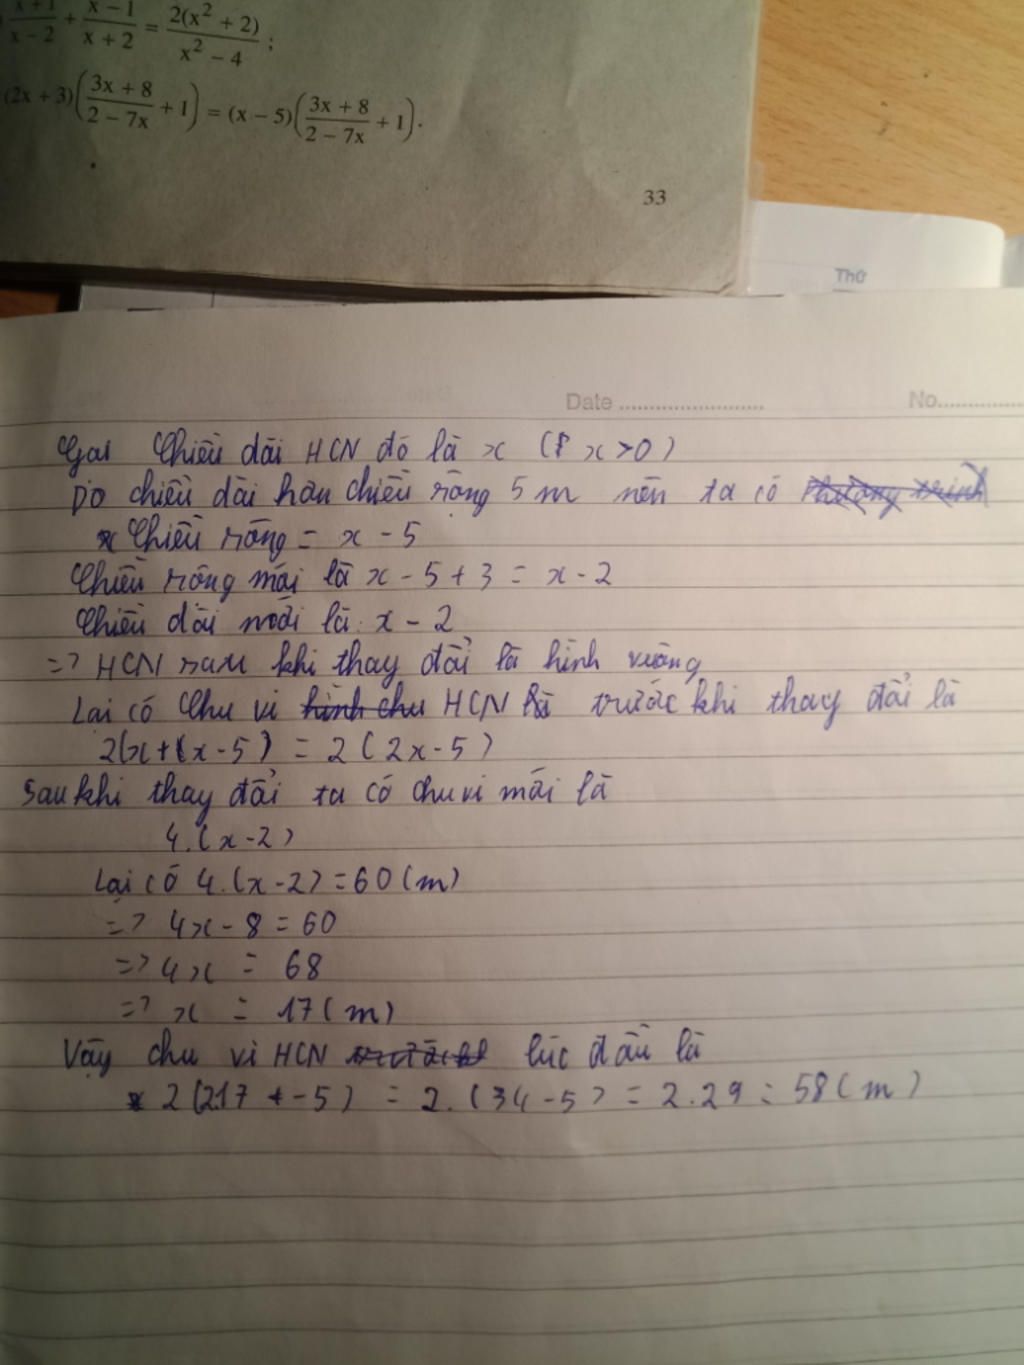 x+1/x−2 + x−1/x+2 = 2(x² + 2)/x² − 4 ;
(2x + 3)(3x + 8/2 − 7x + 1) = (x − 5)(3x + 8/2 − 7x + 1).
33
Thứ
Date ........................ No.............
Gọi Chiều dài HCN đó là x ( x>0)
Do chiều dài hơn chiều rộng 5 m nên ta có
Chiều rộng = x - 5
Chiều rộng mới là x - 5 + 3 = x - 2
Chiều dài mới là: x - 2
=> HCN sau khi thay đổi là hình vuông
Lại có Chu vi HCN trước khi thay đổi là
2(x+(x-5) = 2(2x-5)
Sau khi thay đổi ta có chu vi mới là
4.(x-2)
Lại có 4.(x-2) = 60 (m)
=> 4x - 8 = 60
=> 4x = 68
=> x = 17 (m)
Vậy chu vi HCN lúc đầu là
2(2.17 - 5) = 2.(34-5) = 2.29 = 58 (m)